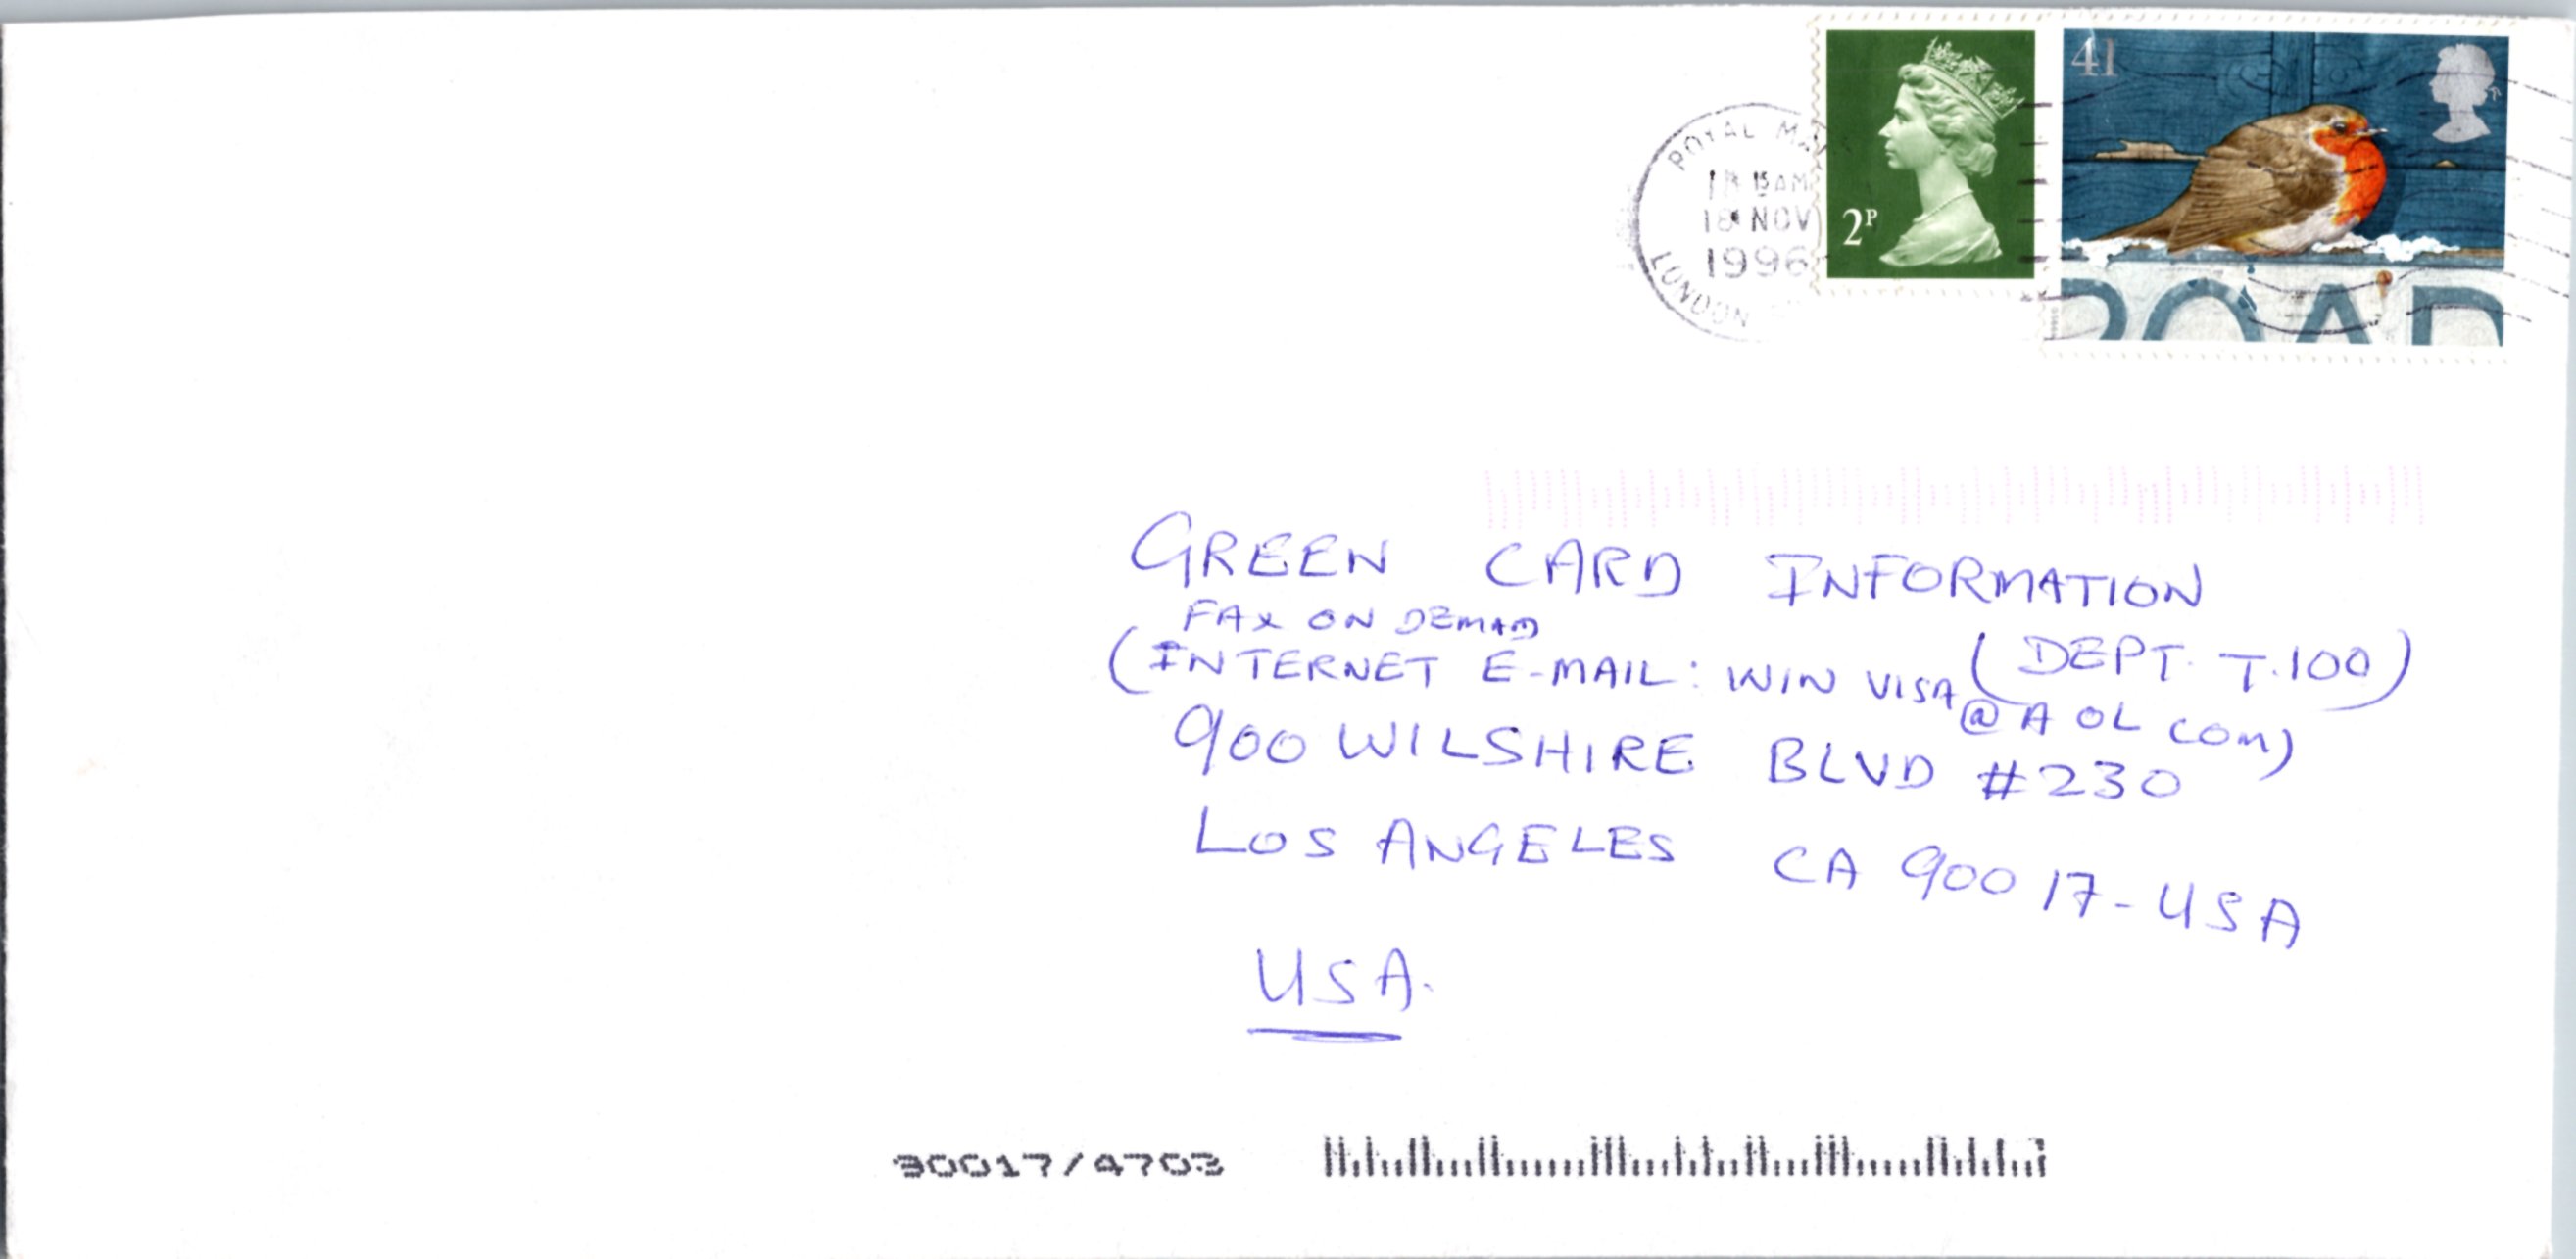 41
2P
ROYAL MAIL
15 AM
18 NOV
1996
LONDON
ROAD
GREEN CARD INFORMATION
FAX ON DEMAD
(DEPT. T.100)
(INTERNET E-MAIL: WIN VISA @ AOL COM)
900 WILSHIRE BLVD #230
LOS ANGELES CA 90017-USA
USA.
90017/4703